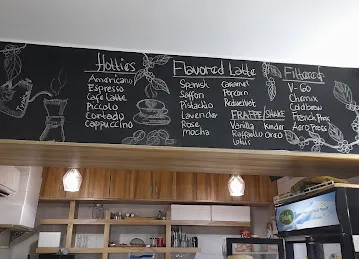 Hotties
Americano
Espresso
Cafe Latte
Piccolo
Cortado
Cappuccino
Flavored Latte
Spanish Caramel
Saffon Popcorn
Pistachio Redvelvet
Lavender
Rose
mocha
FRAPPE/SHAKE
Vanilla Kinder
Raffaello Oreo
Lotus
Filtered
V-60
Chemix
Coldbrew
French Press
AeroPress